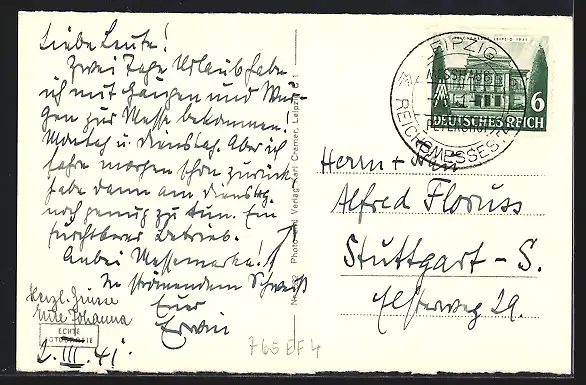 Liebe Leute!
Zwei Tage Urlaub habe
ich mit Hängen und Wür-
gen zur Messe bekommen.
Montag u. Dienstag. Aber ich
fahre morgen schon zurück
habe dann am Dienstag
noch genug zu tun. Ein
furchtbarer Betrieb.
Anbei Messemarke!
In strömendem Schweiß
Euer
Erwin
Herzl. Grüsse
Eure Johanna
ECHTE
FOTOGRAFIE
2. III. 41.
Photo und Verlag Karl Cramer, Leipzig C 1
765 EF 4
LEIPZIG
REICHSMESSESTADT
LEIPZIG 1941
6
DEUTSCHES REICH
Herrn + Frau
Alfred Floruss
Stuttgart - S.
29.